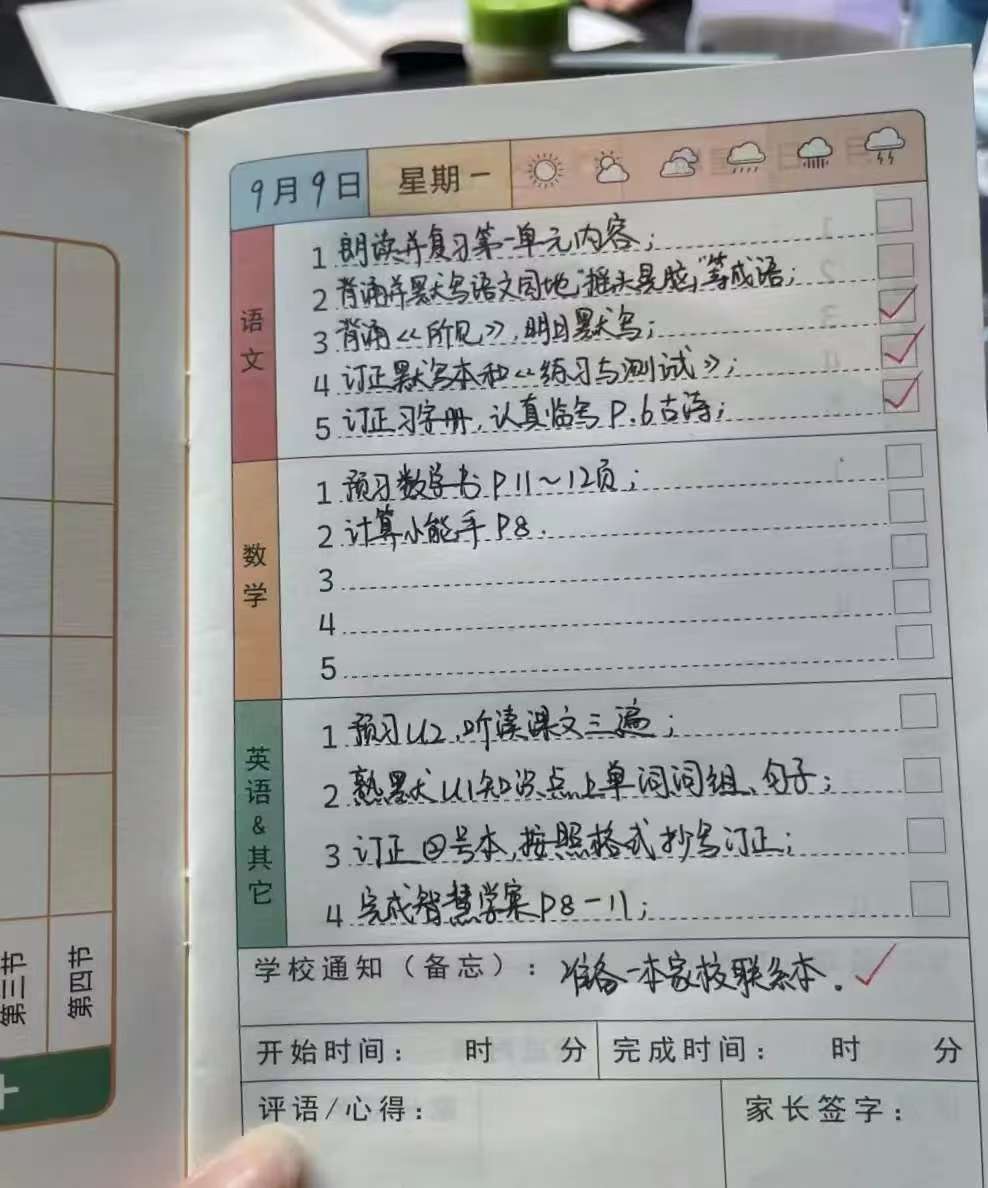 9月9日 星期一
语文
1 朗读并复习第一单元内容；
2 背诵并默写语文园地"摇头晃脑"等成语；
3 背诵《所见》，明日默写；
4 订正默写本和《练习与测试》；
5 订正习字册，认真临写P.6古诗；
数学
1 预习数学书P11～12页；
2 计算小能手P8.
3
4
5
英语&其它
1 预习U2，听读课文三遍；
2 熟默U1知识点上单词词组、句子；
3 订正四号本，按照格式抄写订正；
4 完成智慧学案P8-11；
学校通知（备忘）：准备一本家校联系本.
开始时间： 时 分 完成时间： 时 分
评语/心得： 家长签字：
第三节 第四节